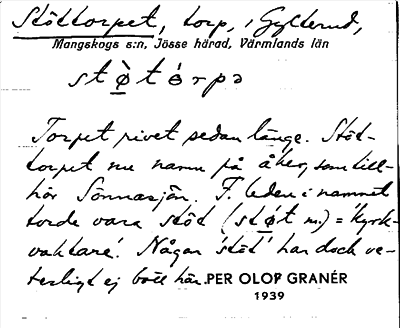 Stöttorpet, torp, i Gylterud,
Mangskogs s:n, Jösse härad, Värmlands län
støt òrpə
Torpet rivet sedan länge. Stöt-
torpet nu namn på åker, som till-
hör Sönnasjön. F. leden i namnet
torde vara stöd (støt m.) = 'kyrk-
vaktare'. Någon 'stöt' har dock ve-
terligt ej bott här.
PER OLOF GRANÉR
1939